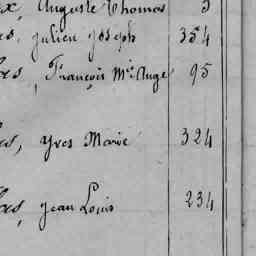 Auguste Thomas 5
Julien Joseph 354
François Mie Ange 95
Yves Marie 324
Jean Louis 234